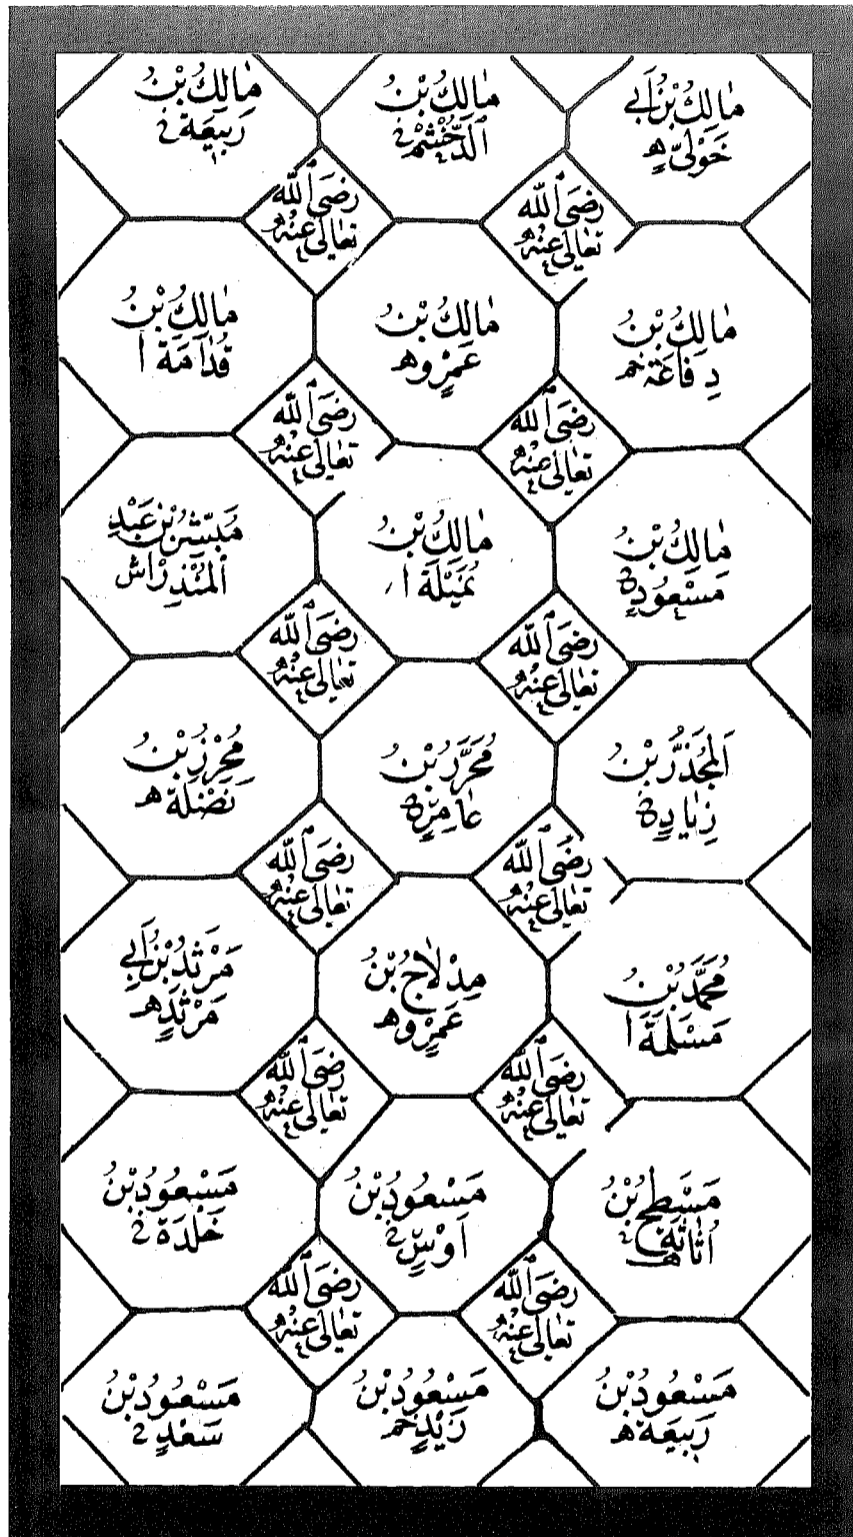 مَالِكُ بْنُ اَبِي
خَوْلِيٍّ ه
مَالِكُ بْنُ
الدُّخْشُمِ
مَالِكُ بْنُ
رَبِيعَةَ
رَضِيَ اللّٰهُ
تَعَالٰى عَنْهُ
رَضِيَ اللّٰهُ
تَعَالٰى عَنْهُ
مَالِكُ بْنُ
رِفَاعَةَ
مَالِكُ بْنُ
عَمْرٍو ه
مَالِكُ بْنُ
قُدَامَةَ ا
رَضِيَ اللّٰهُ
تَعَالٰى عَنْهُ
رَضِيَ اللّٰهُ
تَعَالٰى عَنْهُ
مَالِكُ بْنُ
مَسْعُودٍ
مَالِكُ بْنُ
نُمَيْلَةَ ا
مُبَشِّرُ بْنُ عَبْدِ
الْمُنْذِرِ اش
رَضِيَ اللّٰهُ
تَعَالٰى عَنْهُ
رَضِيَ اللّٰهُ
تَعَالٰى عَنْهُ
اَلْمُجَذَّرُ بْنُ
زِيَادٍ
مُحَرَّرُ بْنُ
عَامِرٍ
مُحْرِزُ بْنُ
نَضْلَةَ ه
رَضِيَ اللّٰهُ
تَعَالٰى عَنْهُ
رَضِيَ اللّٰهُ
تَعَالٰى عَنْهُ
مُحَمَّدُ بْنُ
مَسْلَمَةَ ا
مِدْلَاجُ بْنُ
عَمْرٍو ه
مَرْثَدُ بْنُ اَبِي
مَرْثَدٍ ه
رَضِيَ اللّٰهُ
تَعَالٰى عَنْهُ
رَضِيَ اللّٰهُ
تَعَالٰى عَنْهُ
مَسْطَحُ بْنُ
اُثَاثَةَ ه
مَسْعُودُ بْنُ
اَوْسٍ
مَسْعُودُ بْنُ
خَلْدَةَ
رَضِيَ اللّٰهُ
تَعَالٰى عَنْهُ
رَضِيَ اللّٰهُ
تَعَالٰى عَنْهُ
مَسْعُودُ بْنُ
رَبِيعَةَ ه
مَسْعُودُ بْنُ
زَيْدٍ
مَسْعُودُ بْنُ
سَعْدٍ